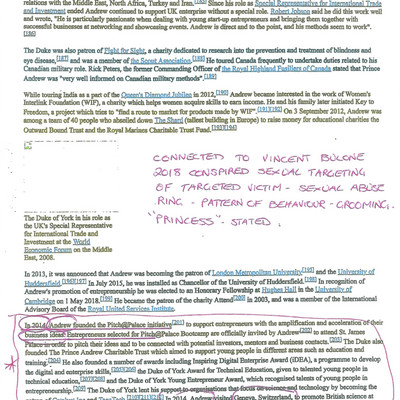 relations with the Middle East, North Africa, Turkey and Iran. Since his role as Special Representative for International Trade
and Investment ended Andrew continued to support UK enterprise without a special role. Robert Jobson said he did this work well
and wrote, "He is particularly passionate when dealing with young start-up entrepreneurs and bringing them together with
successful businesses at networking and showcasing events. Andrew is direct and to the point, and his methods seem to work".
[186]
The Duke was also patron of Fight for Sight, a charity dedicated to research into the prevention and treatment of blindness and
eye disease,[187] and was a member of the Scout Association.[188] He toured Canada frequently to undertake duties related to his
Canadian military role. Rick Peters, the former Commanding Officer of the Royal Highland Fusiliers of Canada stated that Prince
Andrew was "very well informed on Canadian military methods".[189]
While touring India as a part of the Queen's Diamond Jubilee in 2012,[190] Andrew became interested in the work of Women's
Interlink Foundation (WIF), a charity which helps women acquire skills to earn income. He and his family later initiated Key to
Freedom, a project which tries to "find a route to market for products made by WIF".[191][192] On 3 September 2012, Andrew
was among a team of 40 people who abseiled down The Shard (tallest building in Europe) to raise money for educational charities the
Outward Bound Trust and the Royal Marines Charitable Trust Fund.[193][194]
CONNECTED TO VINCENT BULONE
2018 CONSPIRED SEXUAL TARGETING
OF TARGETED VICTIM - SEXUAL ABUSE
RING - PATTERN OF BEHAVIOUR - GROOMING.
"PRINCESS" - STATED.
The Duke of York in his role as
the UK's Special Representative
for International Trade and
Investment at the World
Economic Forum on the
Middle East, 2008.
In 2013, it was announced that Andrew was becoming the patron of London Metropolitan University[195] and the University of
Huddersfield.[196][197] In July 2015, he was installed as Chancellor of the University of Huddersfield.[198] In recognition of
Andrew's promotion of entrepreneurship he was elected to an Honorary Fellowship at Hughes Hall in the University of
Cambridge on 1 May 2018.[199] He became the patron of the charity Attend[200] in 2003, and was a member of the International
Advisory Board of the Royal United Services Institute.
In 2014, Andrew founded the Pitch@Palace initiative[201] to support entrepreneurs with the amplification and acceleration of their
business ideas. Entrepreneurs selected for Pitch@Palace Bootcamp are officially invited by Andrew to attend St. James
Palace in order to pitch their ideas and to be connected with potential investors, mentors and business contacts. The Duke also
founded The Prince Andrew Charitable Trust which aimed to support young people in different areas such as education and
training. He also founded a number of awards including Inspiring Digital Enterprise Award (iDEA), a programme to develop
the digital and enterprise skills, the Duke of York Award for Technical Education, given to talented young people in
technical education, and the Duke of York Young Entrepreneur Award, which recognised talents of young people in
entrepreneurship. The Duke of York lent his support to organisations that focus on science and technology by becoming the
In 2014, Andrew visited Geneva, Switzerland, to promote British science at